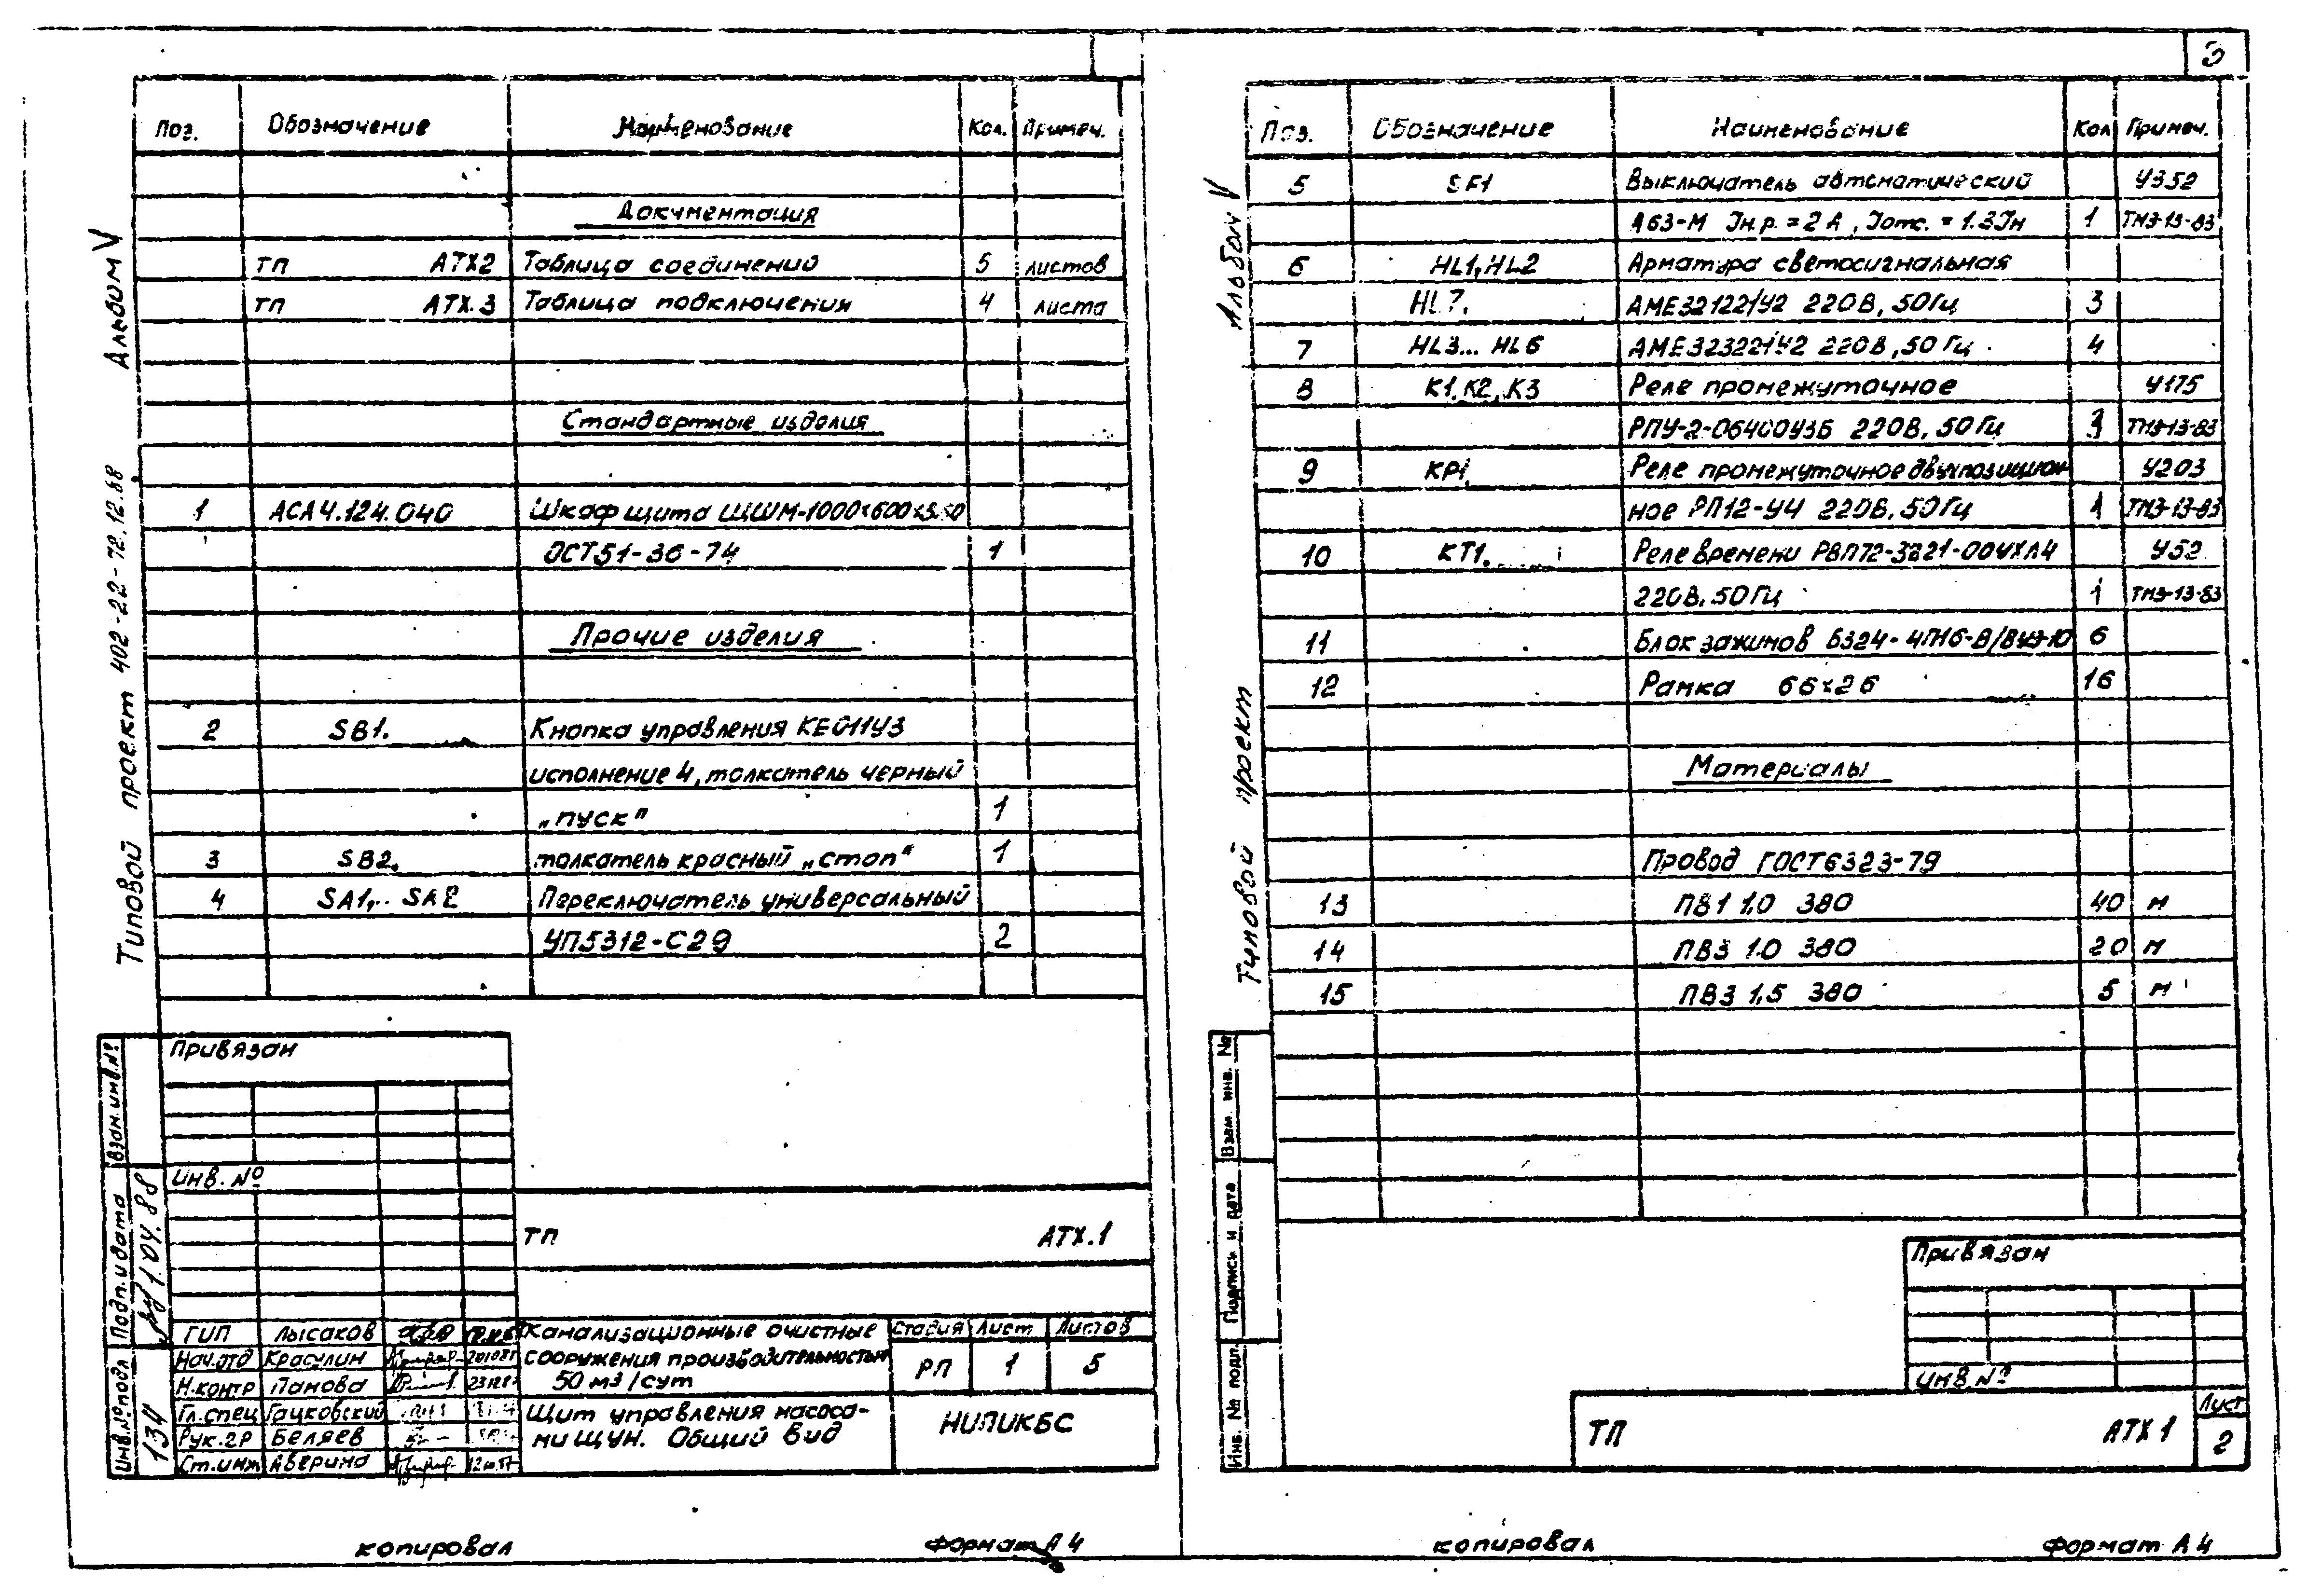 Альбом V
Типовой проект 402-22-72.12.88
Поз. Обозначение Наименование Кол. Примеч.
Документация
ТП АТХ2 Таблица соединений 5 листов
ТП АТХ.3 Таблица подключения 4 листа
Стандартные изделия
1 АСА4.124.040 Шкаф щита ЩШМ-1000х600х
ОСТ51-36-74 1
Прочие изделия
2 SB1. Кнопка управления КЕ011У3
исполнение 4, толкатель черный
„пуск" 1
3 SB2. толкатель красный „стоп" 1
4 SA1,.. SA2 Переключатель универсальный
УП5312-С29 2
Привязан
Инв. №
ТП АТХ.1
ГИП Лысаков
Нач.отд Красулин
Н.контр Панова
Гл.спец Гацковский
Рук.гр Беляев
Ст.инж Аверина
Канализационные очистные
сооружения производительностью
50 м3/сут
Стадия Лист Листов
РП 1 5
Щит управления насоса-
ми ЩУН. Общий вид
НИПИКБС
Взам.инв.№
Подп.и дата
1.04.88
Инв.№подл
134
копировал Формат А4
3
Альбом V
Типовой проект
Поз. Обозначение Наименование Кол Примеч.
5 SF1 Выключатель автоматический У352
А63-М Iн.р. = 2А, Iотс. = 1.3Iн 1 ТМЭ-13-83
6 HL1, HL2 Арматура светосигнальная
HL7. АМЕ32122/У2 220В, 50Гц 3
7 HL3... HL6 АМЕ323221У2 220В, 50Гц 4
8 К1, К2, К3 Реле промежуточное У175
РПУ-2-06400У3Б 220В, 50Гц 3 ТМЭ-13-83
9 КР1. Реле промежуточное двухпозицион У203
ное РП12-У4 220В, 50Гц 1 ТМЭ-13-83
10 КТ1. Реле времени РВП72-3221-00УХЛ4 У52
220В, 50Гц 1 ТМЭ-13-83
11 Блок зажимов БЗ24-4П16-В/ВУ3-10 6
12 Рамка 66х26 16
Материалы
Провод ГОСТ6323-79
13 ПВ1 1.0 380 40 м
14 ПВ3 1.0 380 20 м
15 ПВ3 1,5 380 5 м
Привязан
Инв. №
ТП АТХ 1
Лист
2
Взам. инв. №
Подпись и дата
Инв. № подл.
копировал Формат А4